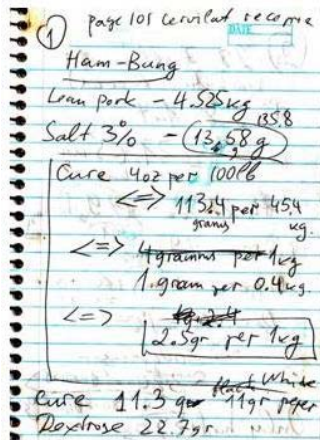 ① page 101 cervilat recepie
DATE
Ham-Bung
Lean pork - 4.525kg
1358
Salt 3% - 13,58 g
Cure 4oz per 100lb
<=> 113,4 per 45,4
grams kg.
<=> 4 grams per 1kg
1.gram per 0.4kg.
<=>
2.5gr per 1kg
Cure 11.3 gr black White
11gr peper
Dextrose 22.7gr.